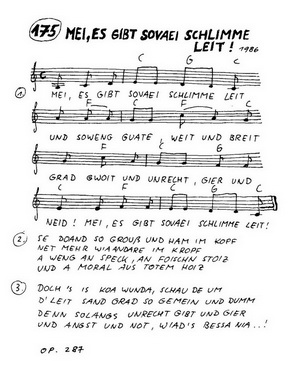 175 MEI, ES GIBT SOVAEI SCHLIMME
LEIT! 1986
C G C
1. MEI, ES GIBT SOVAEI SCHLIMME LEIT
F C F C
UND SOWENG GUATE, WEIT UND BREIT
F C G
GRAD GWOIT UND UNRECHT, GIER UND
C F C G C
NEID! MEI, ES GIBT SOVAEI SCHLIMME LEIT!
2. SE DOAND SO GROUß UND HAM IM KOPF
NET MEHR WIAANDARE IM KROPF
A WENG AN SPECK, AN FOISCHN STOIZ
UND A MORAL AUS TOTEM HOIZ
3. DOCH 'S IS KOA WUNDA, SCHAU DE UM
D' LEIT SAND GRAD SO GEMEIN UND DUMM
DENN SOLANGS UNRECHT GIBT UND GIER
UND ANGST UND NOT, WIAD'S BESSA NIA..!
OP. 287